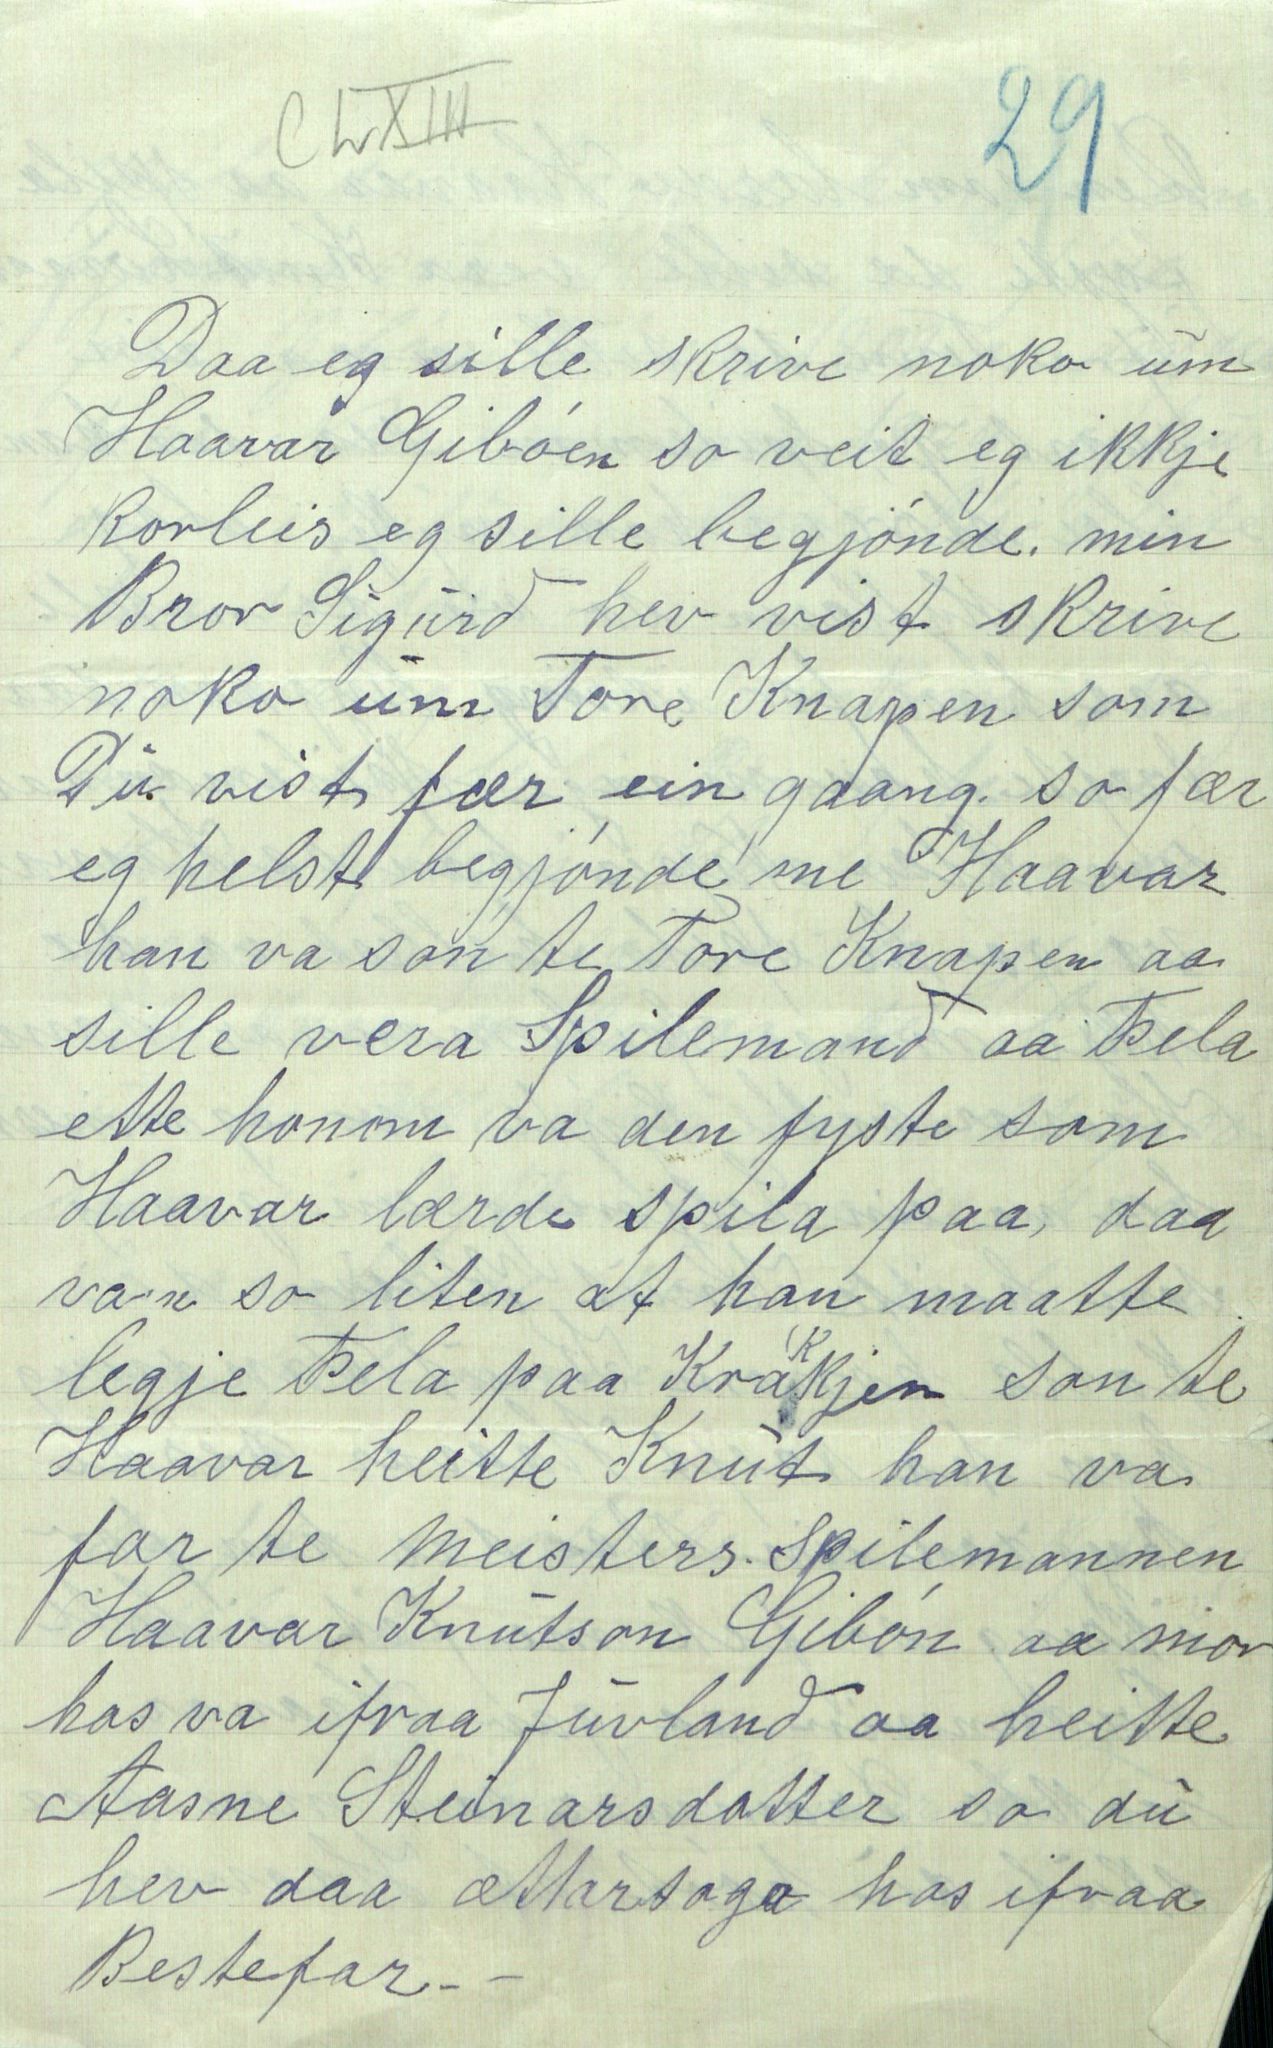 CLXIII
29
Daa eg sille skrive noko um
Haavar Gibóen so veit eg ikkje
korleis eg sille begjónde. min
Bror Sigurd hev vist skrive
noko um Tore Knapen som
Du vist fær ein gaang. so fær
eg helst begjónde me Haavar
han va són te Tore Knapen aa
sille vera Spilemand aa Fela
ette honom va den fyste som
Haavar lærde spila paa, daa
va'n so liten at han maatte
legje Fela paa Krakkjen son te
Haavar heitte Knut han va
far te meisters-spilemannen
Haavar Knutson Gibón aa mor
has va ifraa Juvland aa heitte
Aasne Steinarsdatter so du
hev daa ættarsoga has ifraa
Bestefar. -